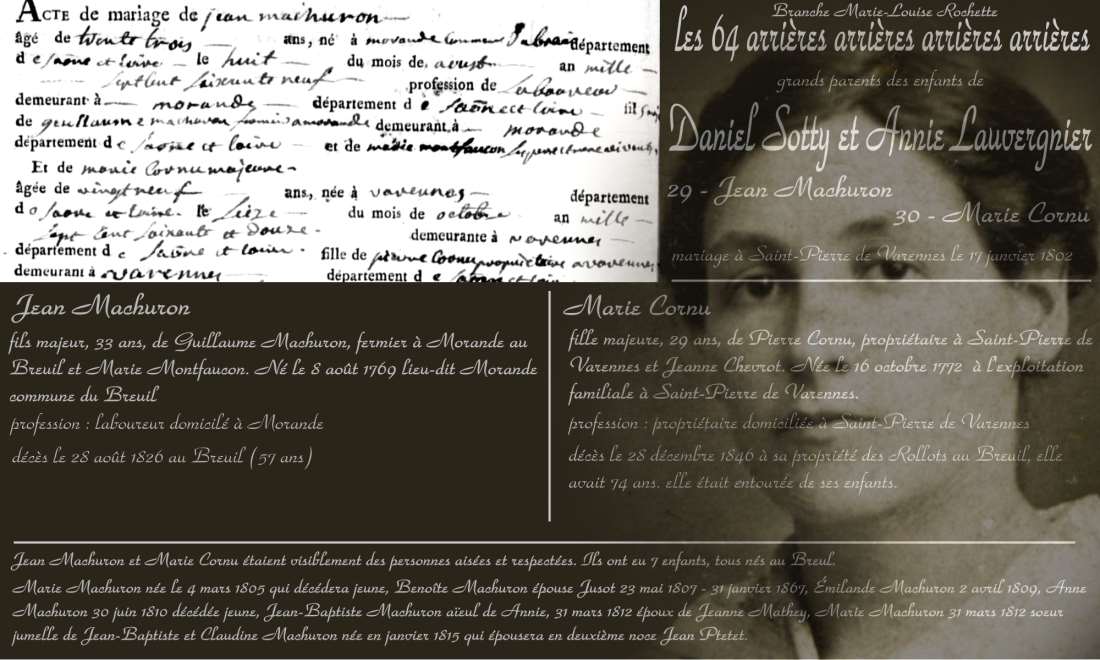 ACTE de mariage de jean machuron
âgé de trente trois ans, né à morande commune Dubreuil département
de saône et loire le huit du mois de aoust an mille
sept cent soixante neuf
profession de laboureur
demeurant à morande département de saône et loire fils
de guillaume machuron fermier a morande demeurant à morande
département de saône et loire et de marie montfaucon
Et de marie Cornu majeure
âgée de vingt neuf ans, née à varennes département
de saone et loire le seize du mois de octobre an mille
sept cent soixante et douze
demeurante à varennes
département de saône et loire fille de pierre Cornu propriétaire a varennes
demeurant à varennes département de saône et loire
Branche Marie-Louise Rochette
les 64 arrières arrières arrières arrières
grands parents des enfants de
Daniel Sotty et Annie Lauvergnier
29 - Jean Machuron
30 - Marie Cornu
mariage à Saint-Pierre de Varennes le 17 janvier 1802
Jean Machuron
fils majeur, 33 ans, de Guillaume Machuron, fermier à Morande au
Breuil et Marie Montfaucon. Né le 8 août 1769 lieu-dit Morande
commune du Breuil
profession : laboureur domicilé à Morande
décès le 28 août 1826 au Breuil (57 ans)
Marie Cornu
fille majeure, 29 ans, de Pierre Cornu, propriétaire à Saint-Pierre de
Varennes et Jeanne Chevrot. Née le 16 octobre 1772 à l'exploitation
familiale à Saint-Pierre de Varennes.
profession : propriétaire domiciliée à Saint-Pierre de Varennes
décès le 28 décembre 1846 à sa propriété des Rollots au Breuil, elle
avait 74 ans. elle était entourée de ses enfants.
Jean Machuron et Marie Cornu étaient visiblement des personnes aisées et respectées. Ils ont eu 7 enfants, tous nés au Breul.
Marie Machuron née le 4 mars 1805 qui décédera jeune, Benoîte Machuron épouse Jusot 23 mai 1807 - 31 janvier 1867, Émilande Machuron 2 avril 1809, Anne
Machuron 30 juin 1810 décédée jeune, Jean-Baptiste Machuron aïeul de Annie, 31 mars 1812 époux de Jeanne Mathey, Marie Machuron 31 mars 1812 soeur
jumelle de Jean-Baptiste et Claudine Machuron née en janvier 1815 qui épousera en deuxième noce Jean Ptetet.